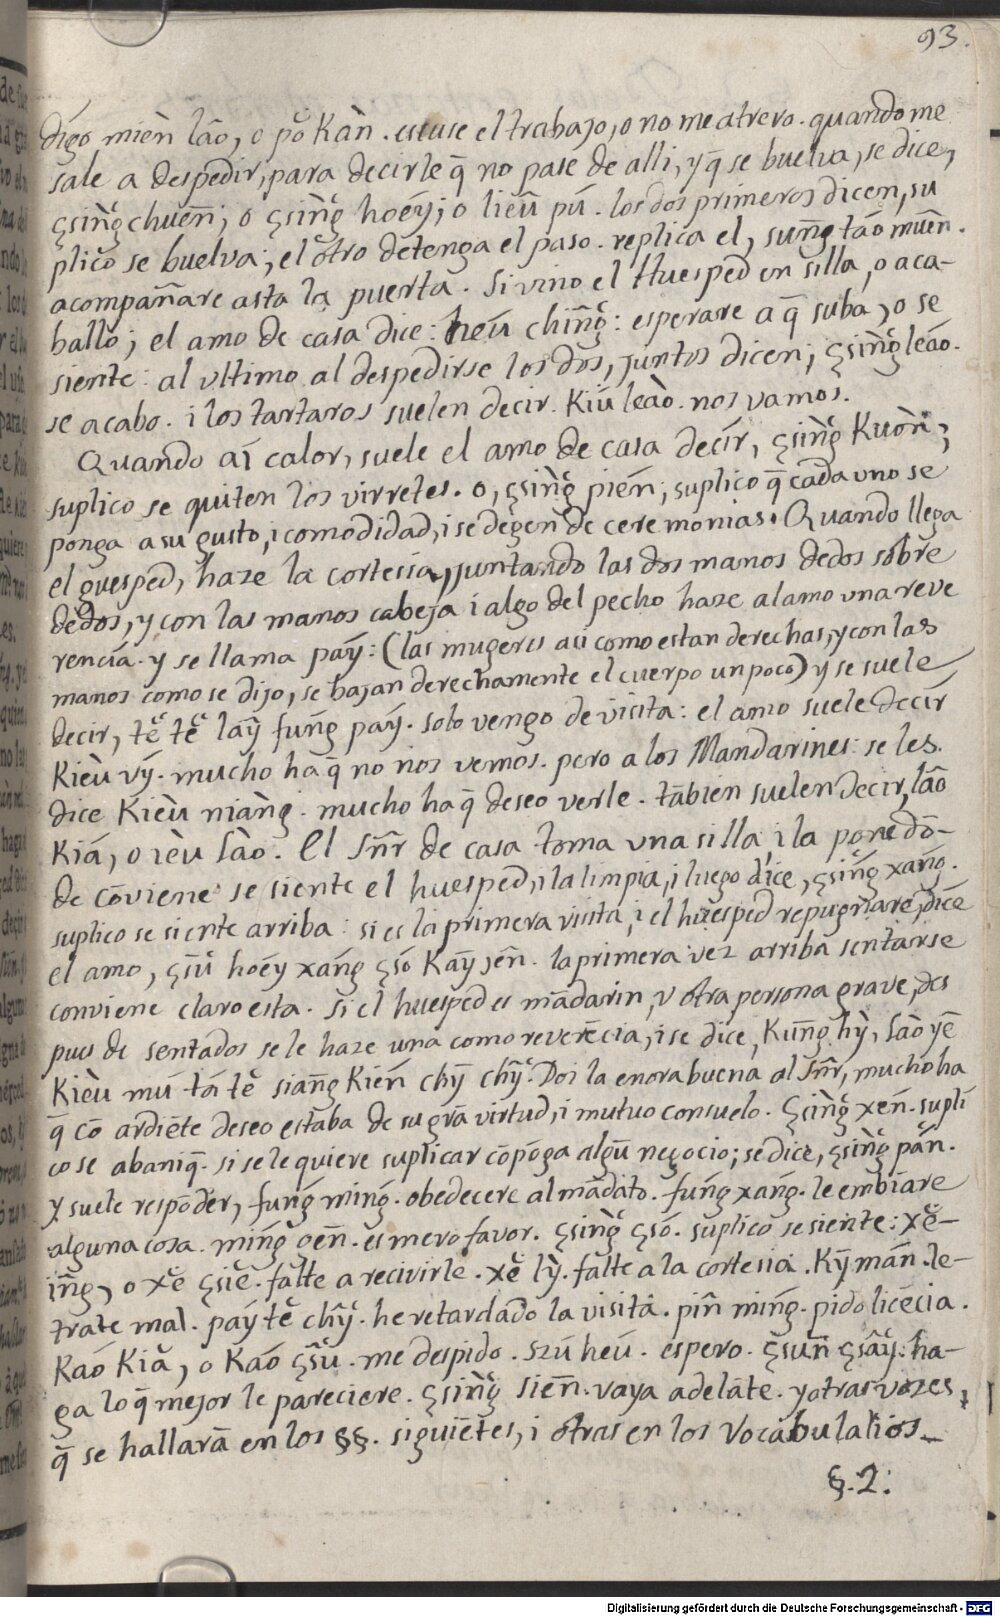 93.
digo mièn laô, o pŏ Kàn. escuse el trabajo, o no me atrevo. quando me
sale a despedir, para decirle q̄ no pase de alli, y q̄ se buelva, se dice,
çsiñg chueñ; o çsiñg hoêy; o lieû pú. los dos primeros dicen, su
plico se buelva, el otro detenga el paso. replica el, suñg taó muên.
acompañare asta la puerta. Si vino el Huesped en silla, o aca-
ballo; el amo de casa dice: heú chiñg: esperare a q̄ suba, o se
siente: al ultimo al despedirse los dos, juntos dicen; çsiñg leáo.
se acabo. i los tartaros suelen decir. Kiú leào. nos vamos.
Quando ai calor, suele el amo de casa decir, çsiñg Kuòn;
suplico se quiten los virretes. o, çsiñg pién; suplico q̄ cada uno se
ponga a su gusto, i comodidad, i se degen de ceremonias. Quando llega
el guesped, haze la cortesia, juntando las dos manos dedos sobre
dedos, y con las manos cabeja i algo del pecho haze al amo una reve
rencia. y se llama paý: (las mugeres asi como estan derechas, y con las
manos como se dijo, se bajan derechamente el cuerpo un poco) y se suele
decir, tĕ tĕ laŷ fuñg paý. solo vengo de visita: el amo suele decir
Kieù vý. mucho ha q̄ no nos vemos. pero a los Mandarines se les
dice Kieù niàng. mucho ha q̄ deseo verle. tābien suelen decir, laô
Kiá, o ieù laò. El Sñr de casa toma una silla, i la pone dō-
de cōviene se siente el huesped, i la limpia, i luego dice, çsiñg xańg.
suplico se siente arriba: si es la primera visita, i el huesped repugnare, dice
el amo, çsū hoêy xańg çsó Kaȳ jên. la primera vez arriba sentarse
conviene claro esta. Si el huesped es mādarin, v otra persona grave, des
pues de sentados se le haze una como reverēcia, i se dice, Kuñg hỳ, laò yê
Kieù mú tá tĕ siañg Kién chȳ chŷ. Doi la enorabuena al Sñr, mucho ha
q̄ cō ardiēte deseo estaba de su grā virtud, i mutuo consuelo. çsiñg xeñ. supli
co se abaniq̄. si se le quiere suplicar cōpōga algū negocio; se dice, çsiñg páñ.
y suele respōder, fuñg ming. obedecere al mādato. fuñg xańg. le embiare
alguna cosa. mińg oeñ. es mero favor. çsiñg çsó. suplico se siente: xĕ-
iñg, o xĕ çsiĕ. falte a recivirle. xĕ lỳ. falte a la cortesia. Kȳ mań. le-
trate mal. paý tĕ chŷ. he retardado la visita. piñ mińg. pido licēcia.
Kaó Kiă, o Kaó çsû. me despido. szú heú. espero. çsuñ çsây: ha-
ga lo q̄ mejor le pareciere. çsiñg sieñ. vaya adelāte. y otras vozes,
q̄ se hallarā en los §§. siguiētes, i otras en los Vocabularios_
§. 2.
Digitalisierung gefördert durch die Deutsche Forschungsgemeinschaft - DFG